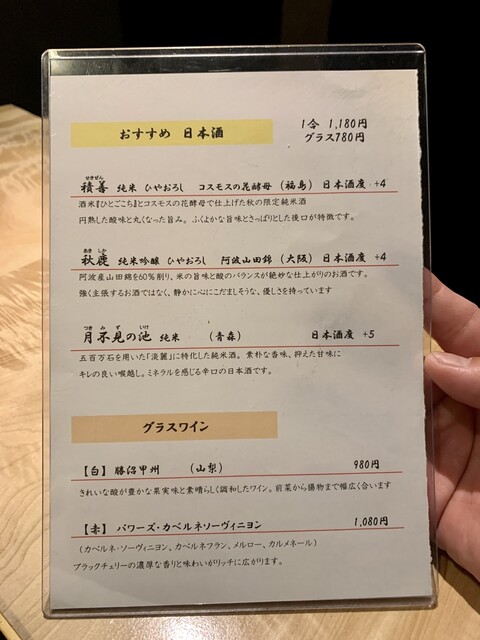 おすすめ 日本酒
1合 1,180円
グラス780円
せきぜん
積善 純米 ひやおろし コスモスの花酵母（福島）日本酒度 +4
酒米『ひとごこち』とコスモスの花酵母で仕上げた秋の限定純米酒
円熟した酸味と丸くなった旨み。ふくよかな旨味とさっぱりとした後口が特徴です。
あき しか
秋鹿 純米吟醸 ひやおろし 阿波山田錦（大阪）日本酒度 +4
阿波産山田錦を60%削り、米の旨味と酸のバランスが絶妙な仕上がりのお酒です。
強く主張するお酒ではなく、静かに心にこだましそうな、優しさを持っています
つき み ず いけ
月不見の池 純米 （青森） 日本酒度 +5
五百万石を用いた「淡麗」に特化した純米酒。素朴な香味、抑えた甘味に
キレの良い喉越し。ミネラルを感じる辛口の日本酒です。
グラスワイン
【白】勝沼甲州 （山梨） 980円
きれいな酸が豊かな果実味と素晴らしく調和したワイン。前菜から揚物まで幅広く合います
【赤】パワーズ・カベルネソーヴィニヨン 1,080円
（カベルネ・ソーヴィニヨン、カベルネフラン、メルロー、カルメネール）
ブラックチェリーの濃厚な香りと味わいがリッチに広がります。